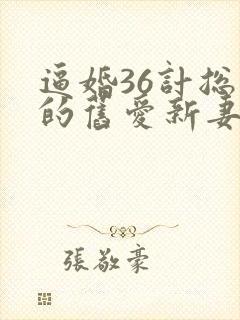 逼婚36計总
的舊愛新妻
張敬豪